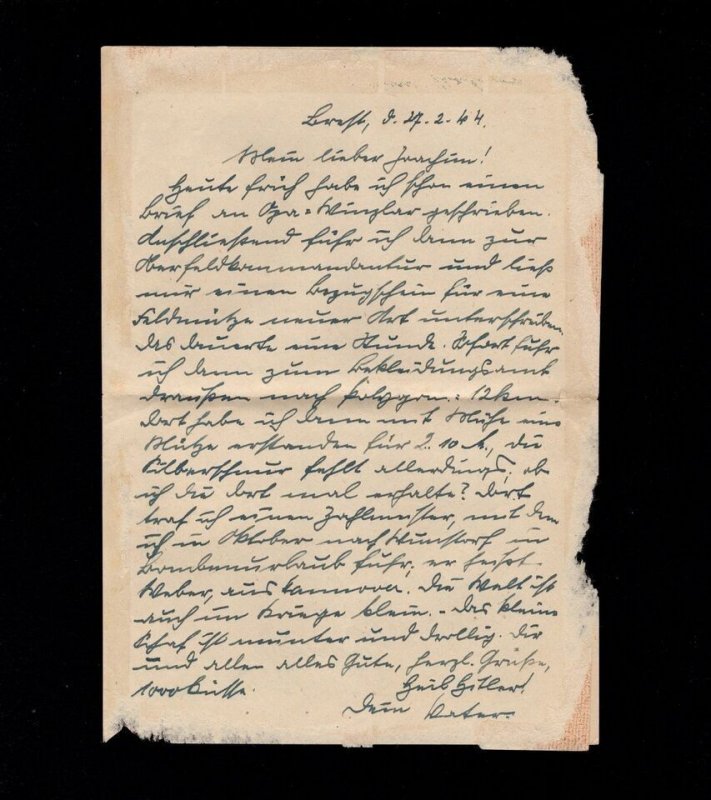 Brest, d. 27.2.44.
Mein lieber Joachim!
Heute früh habe ich schon einen
Brief an Opa-Winzlar geschrieben.
Anschließend fuhr ich dann zur
Oberfeldkommandantur und ließ
mir einen Bezugschein für eine
Feldmütze neuer Art unterschreiben.
Das dauerte eine Stunde. Sofort fuhr
ich dann zum Bekleidungsamt
draußen nach Polygon: 12 km.
Dort habe ich dann mit Mühe eine
Mütze erstanden für 2.10 M., die
Silberschnur fehlt allerdings; ob
ich die dort mal erhalte? Dort
traf ich einen Zahlmeister, mit dem
ich im Oktober nach Wunstorf in
Bombenurlaub fuhr; er heißt
Weber, aus Hannover. Die Welt ist
auch im Kriege klein. - Das kleine
Schaf ist munter und drollig. Dir
und allen alles Gute, herzl. Grüße,
1000 Küsse. Heil Hitler!
Dein Vater.